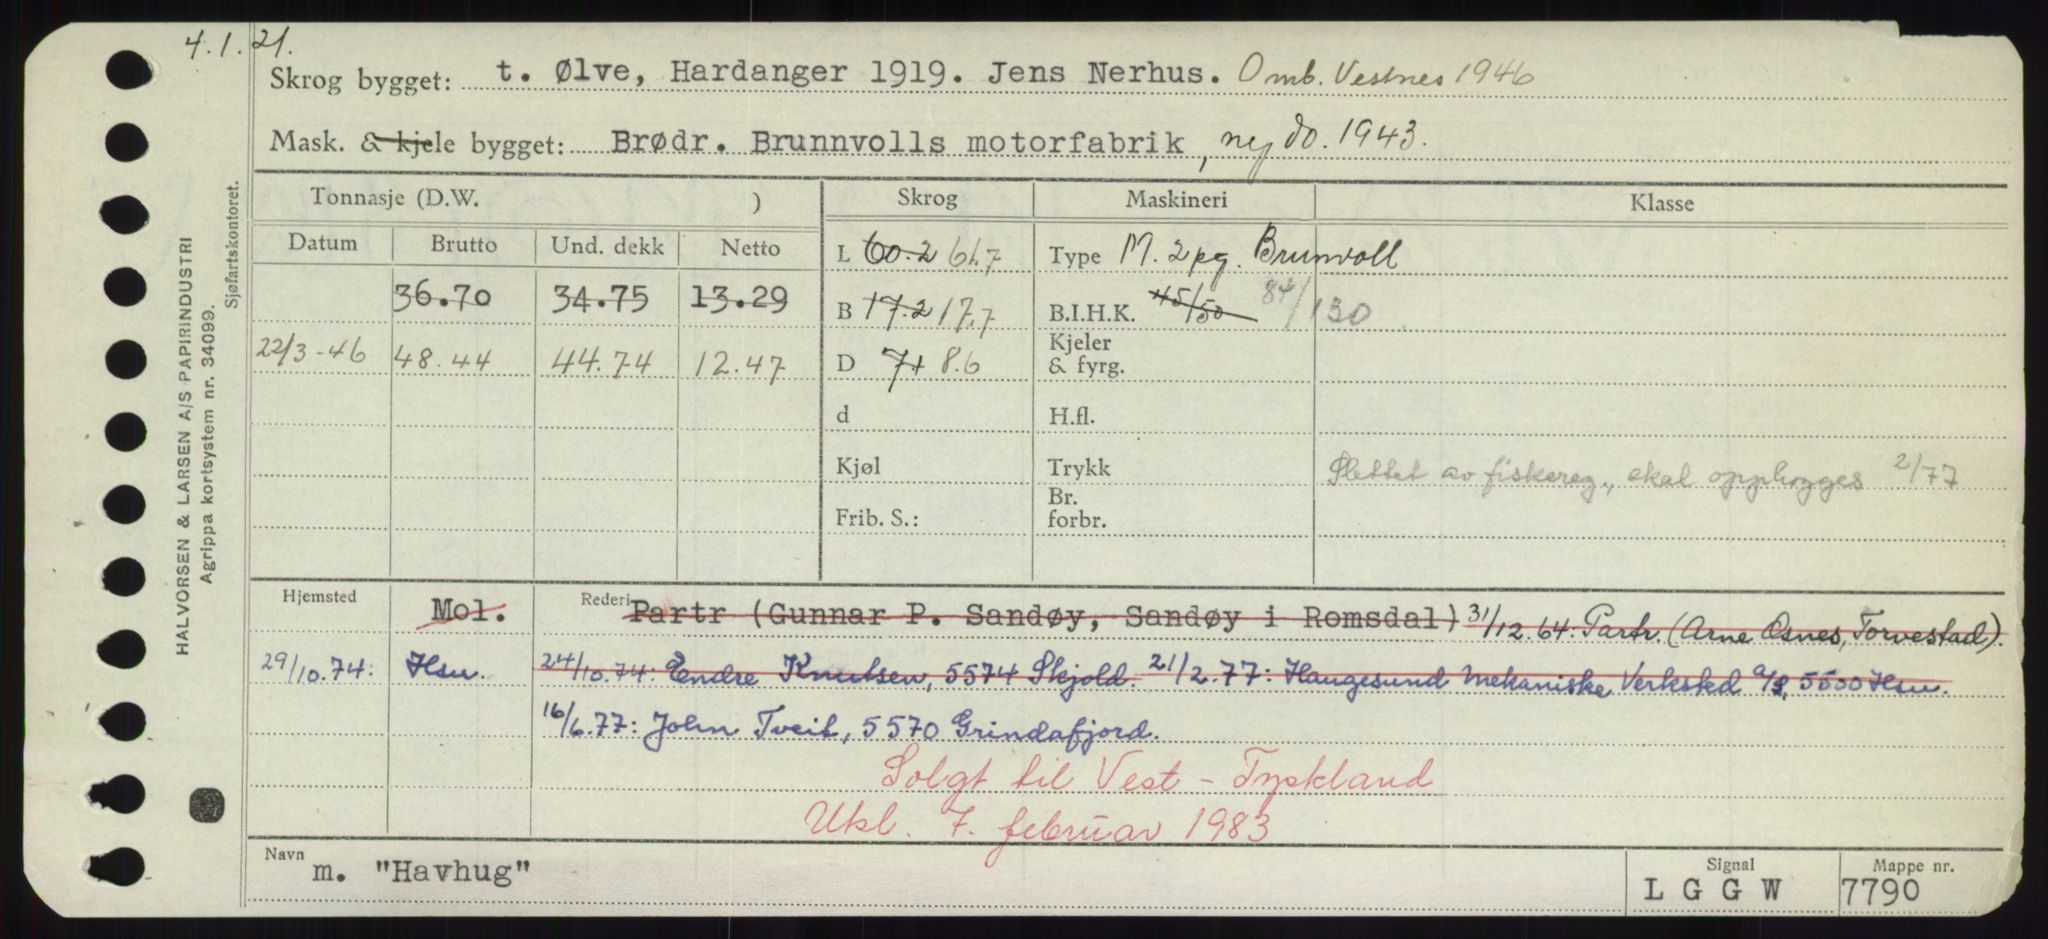 4.1.21.
Skrog bygget: t. Ølve, Hardanger 1919. Jens Nerhus. Omb. Vestnes 1946
Mask. & kjele bygget: Brødr. Brunnvolls motorfabrik, ny do. 1943.
Tonnasje (D.W. ) Skrog Maskineri Klasse
Datum Brutto Und. dekk Netto
L 60.2 61.7 Type M. 2pg. Brunvoll
36.70 34.75 13.29
B 17.2 17.7 B.I.H.K. 45/50 84/130
22/3-46 48.44 44.74 12.47
D 7.1 8.6 Kjeler & fyrg.
d H.fl.
Kjøl Trykk Slettet av fiskereg., skal opphogges 2/77
Frib. S.: Br. forbr.
Hjemsted Mol. Rederi Partr (Gunnar P. Sandøy, Sandøy i Romsdal) 31/12.64: Partr. (Arne Osnes, Torvestad).
29/10.74: Hsu. 24/10.74: Endre Knutsen, 5574 Skjold. 21/2.77: Haugesund Mekaniske Verksted a/s, 5500 Hsu.
16/6.77: John Tveit, 5570 Grindafjord.
Solgt til Vest-Tyskland
Utkl. 7. februar 1983
Navn m. "Havhug" Signal LGGW Mappe nr. 7790
HALVORSEN & LARSEN A/S PAPIRINDUSTRI
Agrippa kortsystem nr. 34099.
Sjøfartskontoret.